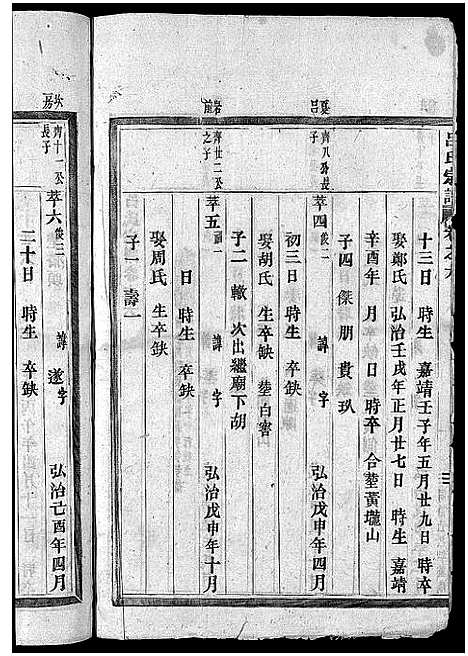 呂氏宗譜
十三日 時生 嘉靖壬子年五月廿九日 時卒
娶鄭氏 弘治壬戌年正月廿七日 時生 嘉靖
辛酉年 月 日 時卒 合塟黃壠山
子四 傑 朋 貴 玖
夏呂
齊八公長子
萃四 俊二 諱 字 弘治戊申年四月
初三日 時生 卒缺
娶胡氏 生卒缺 塟白窖山
子二 轍 次出繼廟下胡
岩前
齊廿二公之子
萃五 諱 字 弘治戊申年十月
日 時生 卒缺
娶周氏 生卒缺
子一 壽一
齊十一公長子
萃六 俊三 諱遂 字 弘治己酉年四月
二十日 時生 卒缺